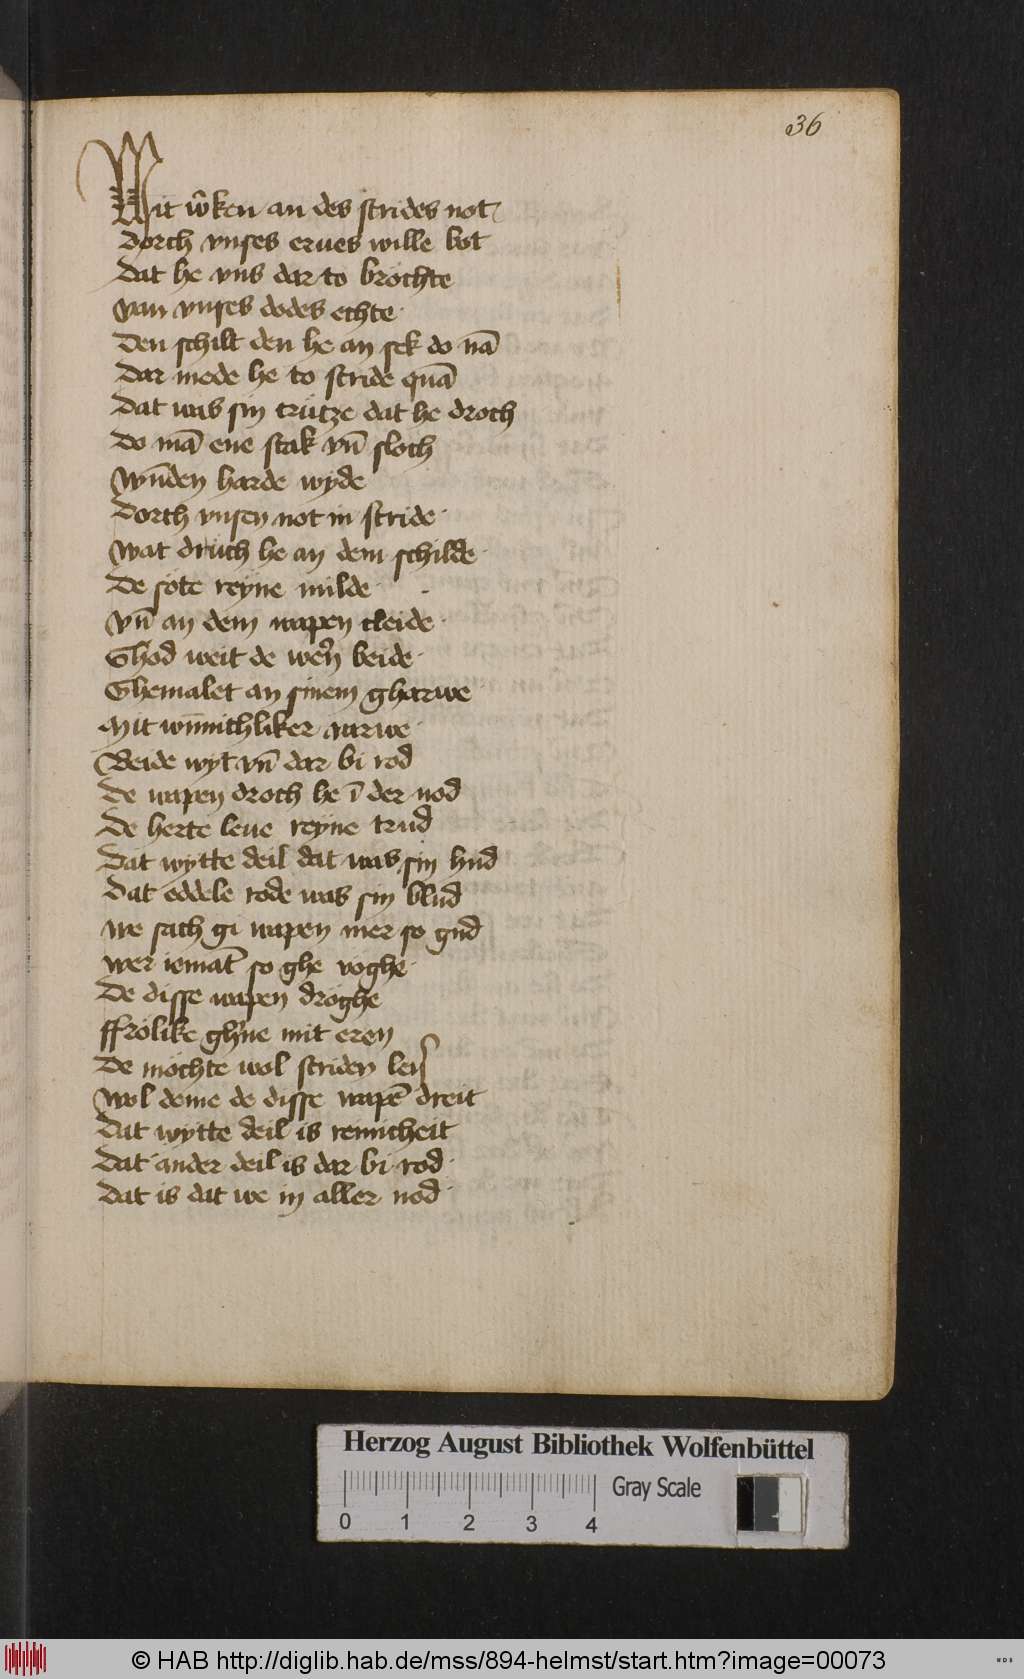 36
Mit w̑ken an des strides not
dorch vnses erues wille bot
dat he vns dar to brochte
van vnses dodes echte
Den schilt den he an sek do nā
dar mede he to stride quā
Dat was sin trůtze dat he droch
do mā ene stak vn̄ sloch
wn̄den harde wyde
dorch vnsen not in stride
wat drůch he an dem schilde
de sote reyne milde
vn̄ an dem wapen cleide
Ghod weit de wern beide
Ghemalet an sinem gharwe
Mit wn̄nichliker varwe
Beide wyt vn̄ dar bi rod
de wapen droch he ī der nod
de herte leue reyne trud
dat wytte deil dat was sin hud
dat eddele rode was sin blud
we sach gi wapen mer so gud
wer iemāt so ghe voghe
De disse wapen droghe
ffrolike gh'ne mit eren
de mochte wol striden leren
wol deme de disse wapē dreit
dat wytte deil is renicheit
dat ander deil is dar bi rod
dat is dat we in aller nod
Herzog August Bibliothek Wolfenbüttel
0 1 2 3 4
Gray Scale
© HAB http://diglib.hab.de/mss/894-helmst/start.htm?image=00073